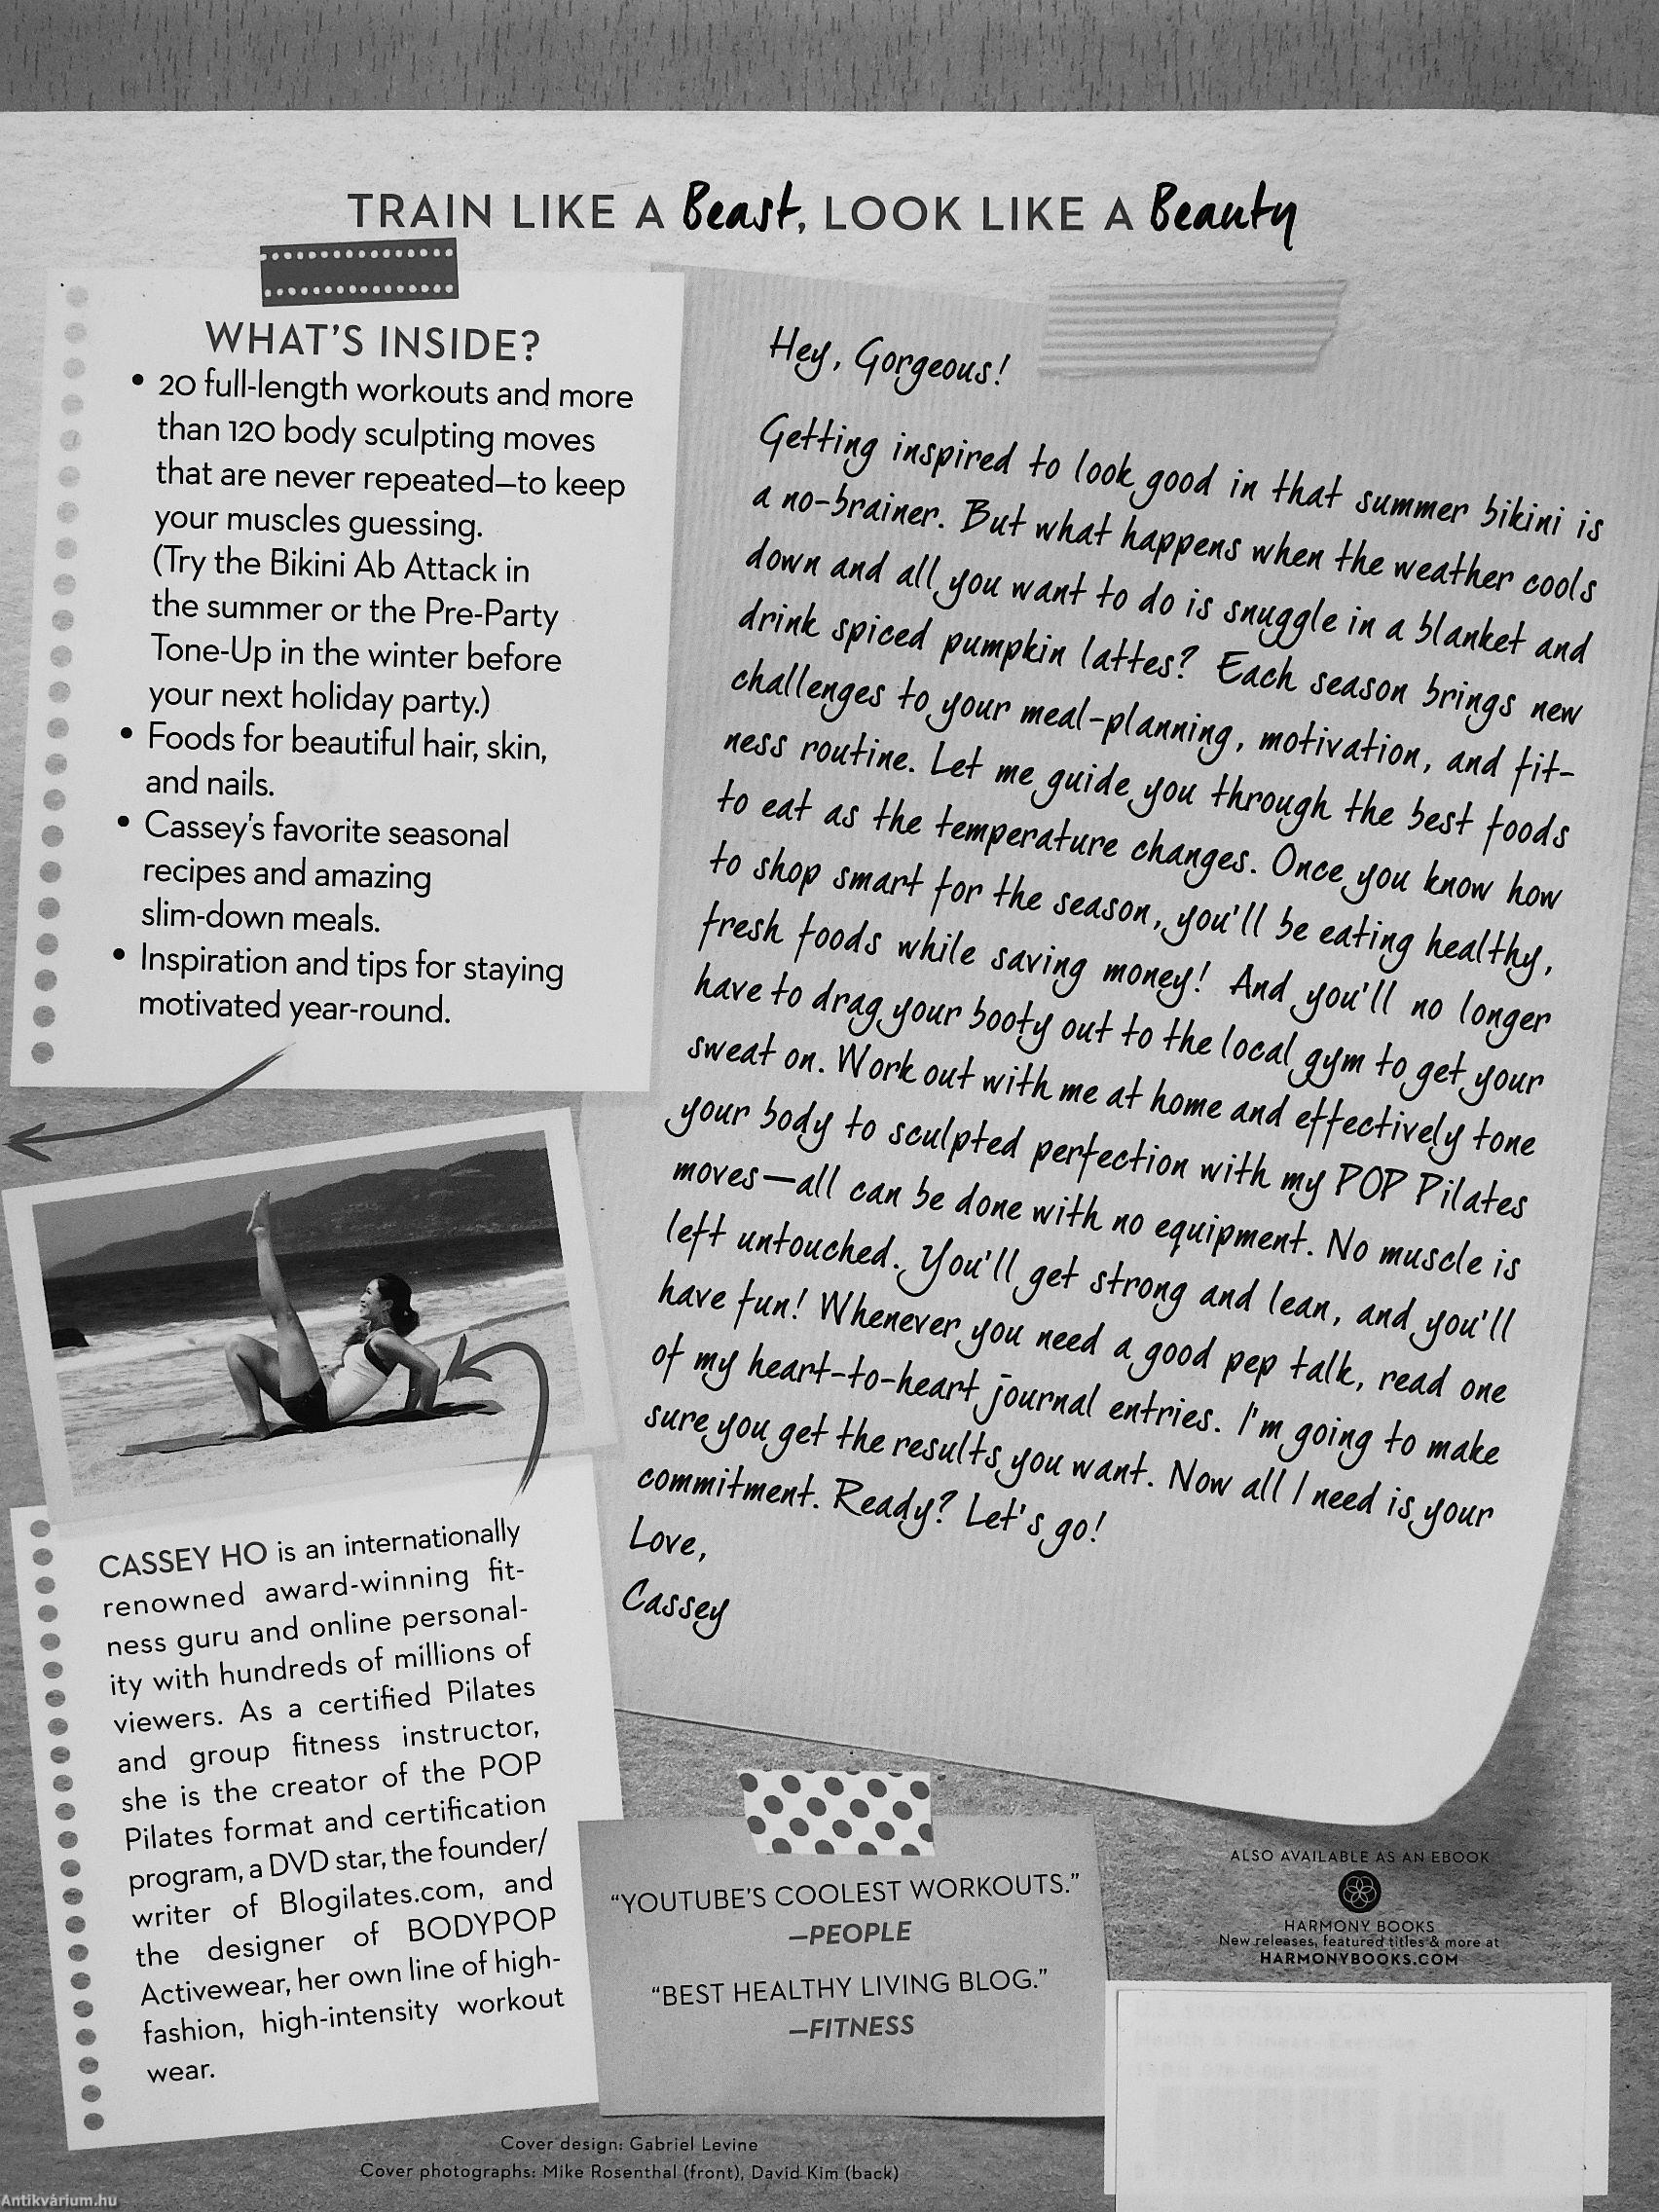 TRAIN LIKE A Beast, LOOK LIKE A Beauty
WHAT'S INSIDE?
• 20 full-length workouts and more
than 120 body sculpting moves
that are never repeated—to keep
your muscles guessing.
(Try the Bikini Ab Attack in
the summer or the Pre-Party
Tone-Up in the winter before
your next holiday party.)
• Foods for beautiful hair, skin,
and nails.
• Cassey's favorite seasonal
recipes and amazing
slim-down meals.
• Inspiration and tips for staying
motivated year-round.
Hey, Gorgeous!
Getting inspired to look good in that summer bikini is
a no-brainer. But what happens when the weather cools
down and all you want to do is snuggle in a blanket and
drink spiced pumpkin lattes? Each season brings new
challenges to your meal-planning, motivation, and fit-
ness routine. Let me guide you through the best foods
to eat as the temperature changes. Once you know how
to shop smart for the season, you'll be eating healthy,
fresh foods while saving money! And you'll no longer
have to drag your booty out to the local gym to get your
sweat on. Work out with me at home and effectively tone
your body to sculpted perfection with my POP Pilates
moves—all can be done with no equipment. No muscle is
left untouched. You'll get strong and lean, and you'll
have fun! Whenever you need a good pep talk, read one
of my heart-to-heart journal entries. I'm going to make
sure you get the results you want. Now all I need is your
commitment. Ready? Let's go!
Love,
Cassey
CASSEY HO is an internationally
renowned award-winning fit-
ness guru and online personal-
ity with hundreds of millions of
viewers. As a certified Pilates
and group fitness instructor,
she is the creator of the POP
Pilates format and certification
program, a DVD star, the founder/
writer of Blogilates.com, and
the designer of BODYPOP
Activewear, her own line of high-
fashion, high-intensity workout
wear.
"YOUTUBE'S COOLEST WORKOUTS."
—PEOPLE
"BEST HEALTHY LIVING BLOG."
—FITNESS
ALSO AVAILABLE AS AN EBOOK
HARMONY BOOKS
New releases, featured titles & more at
HARMONYBOOKS.COM
Cover design: Gabriel Levine
Cover photographs: Mike Rosenthal (front), David Kim (back)
Antikvárium.hu